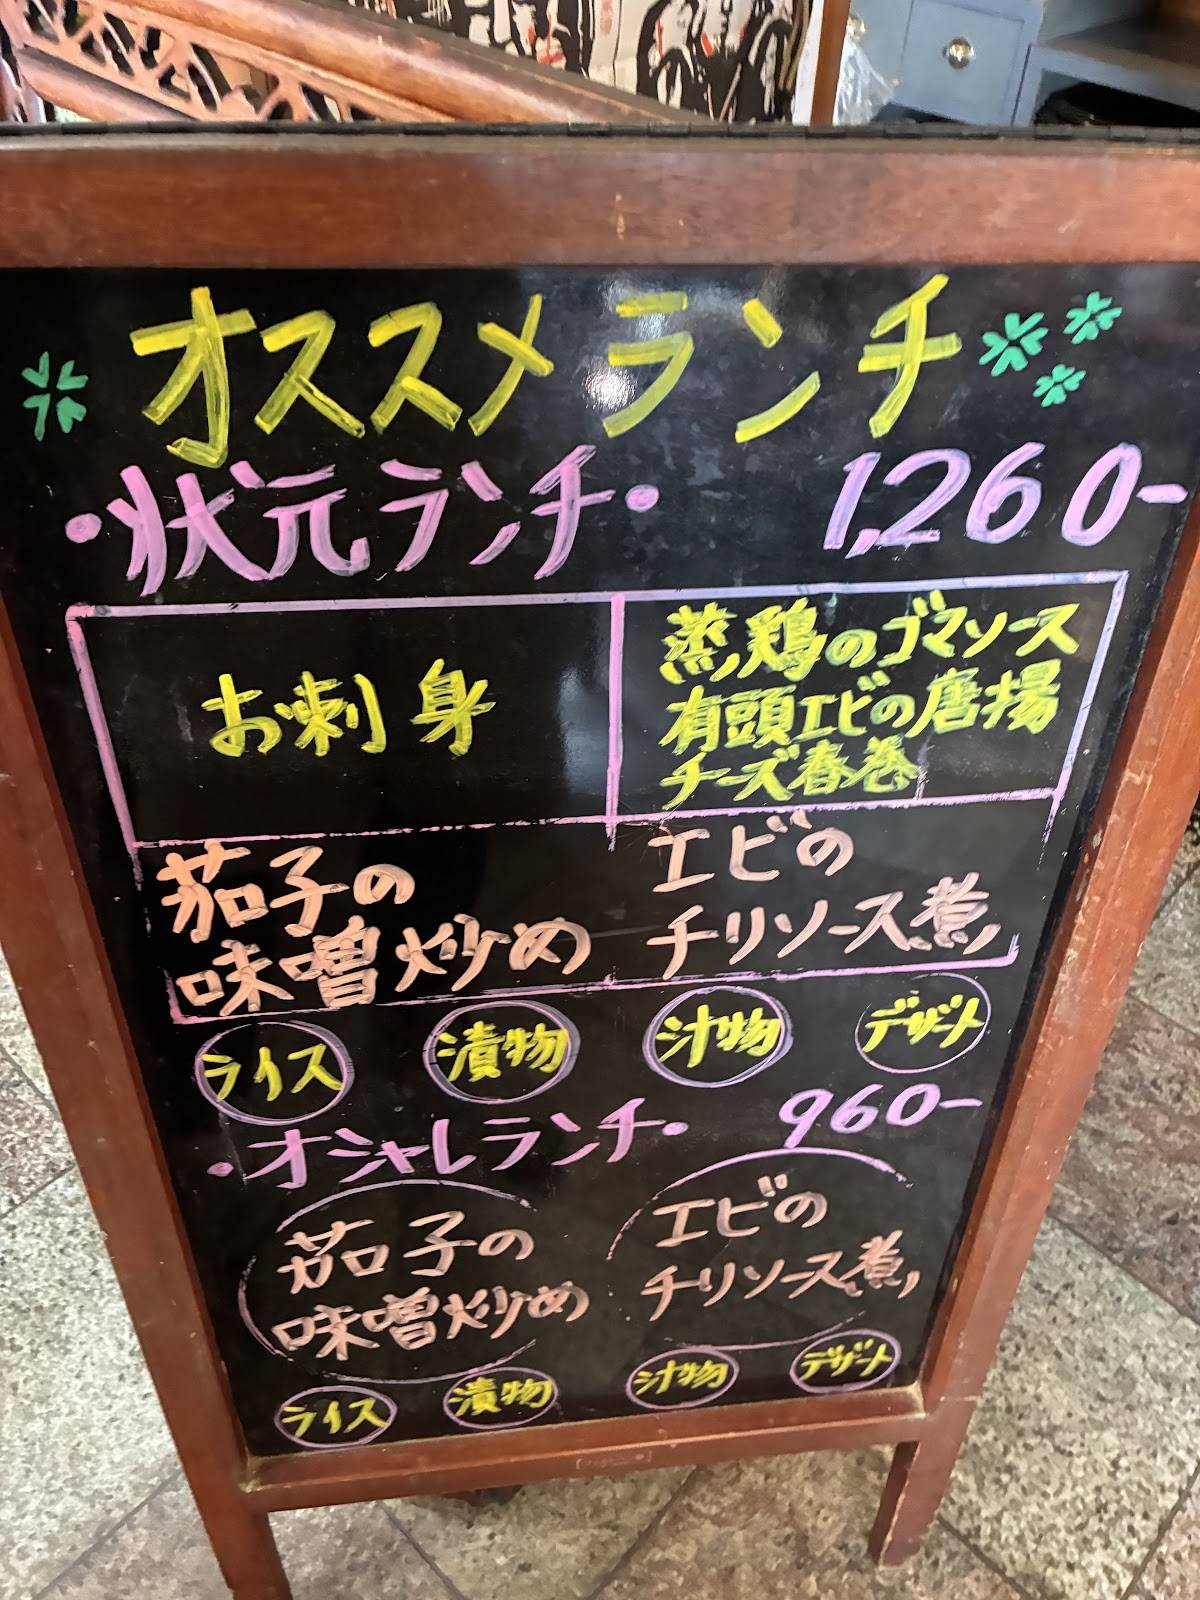 オススメランチ
・状元ランチ・ 1,260-
お刺身
蒸鶏のゴマソース
有頭エビの唐揚
チーズ春巻
茄子の
味噌炒め
エビの
チリソース煮
ライス 漬物 汁物 デザート
・オシャレランチ・ 960-
茄子の
味噌炒め
エビの
チリソース煮
ライス 漬物 汁物 デザート